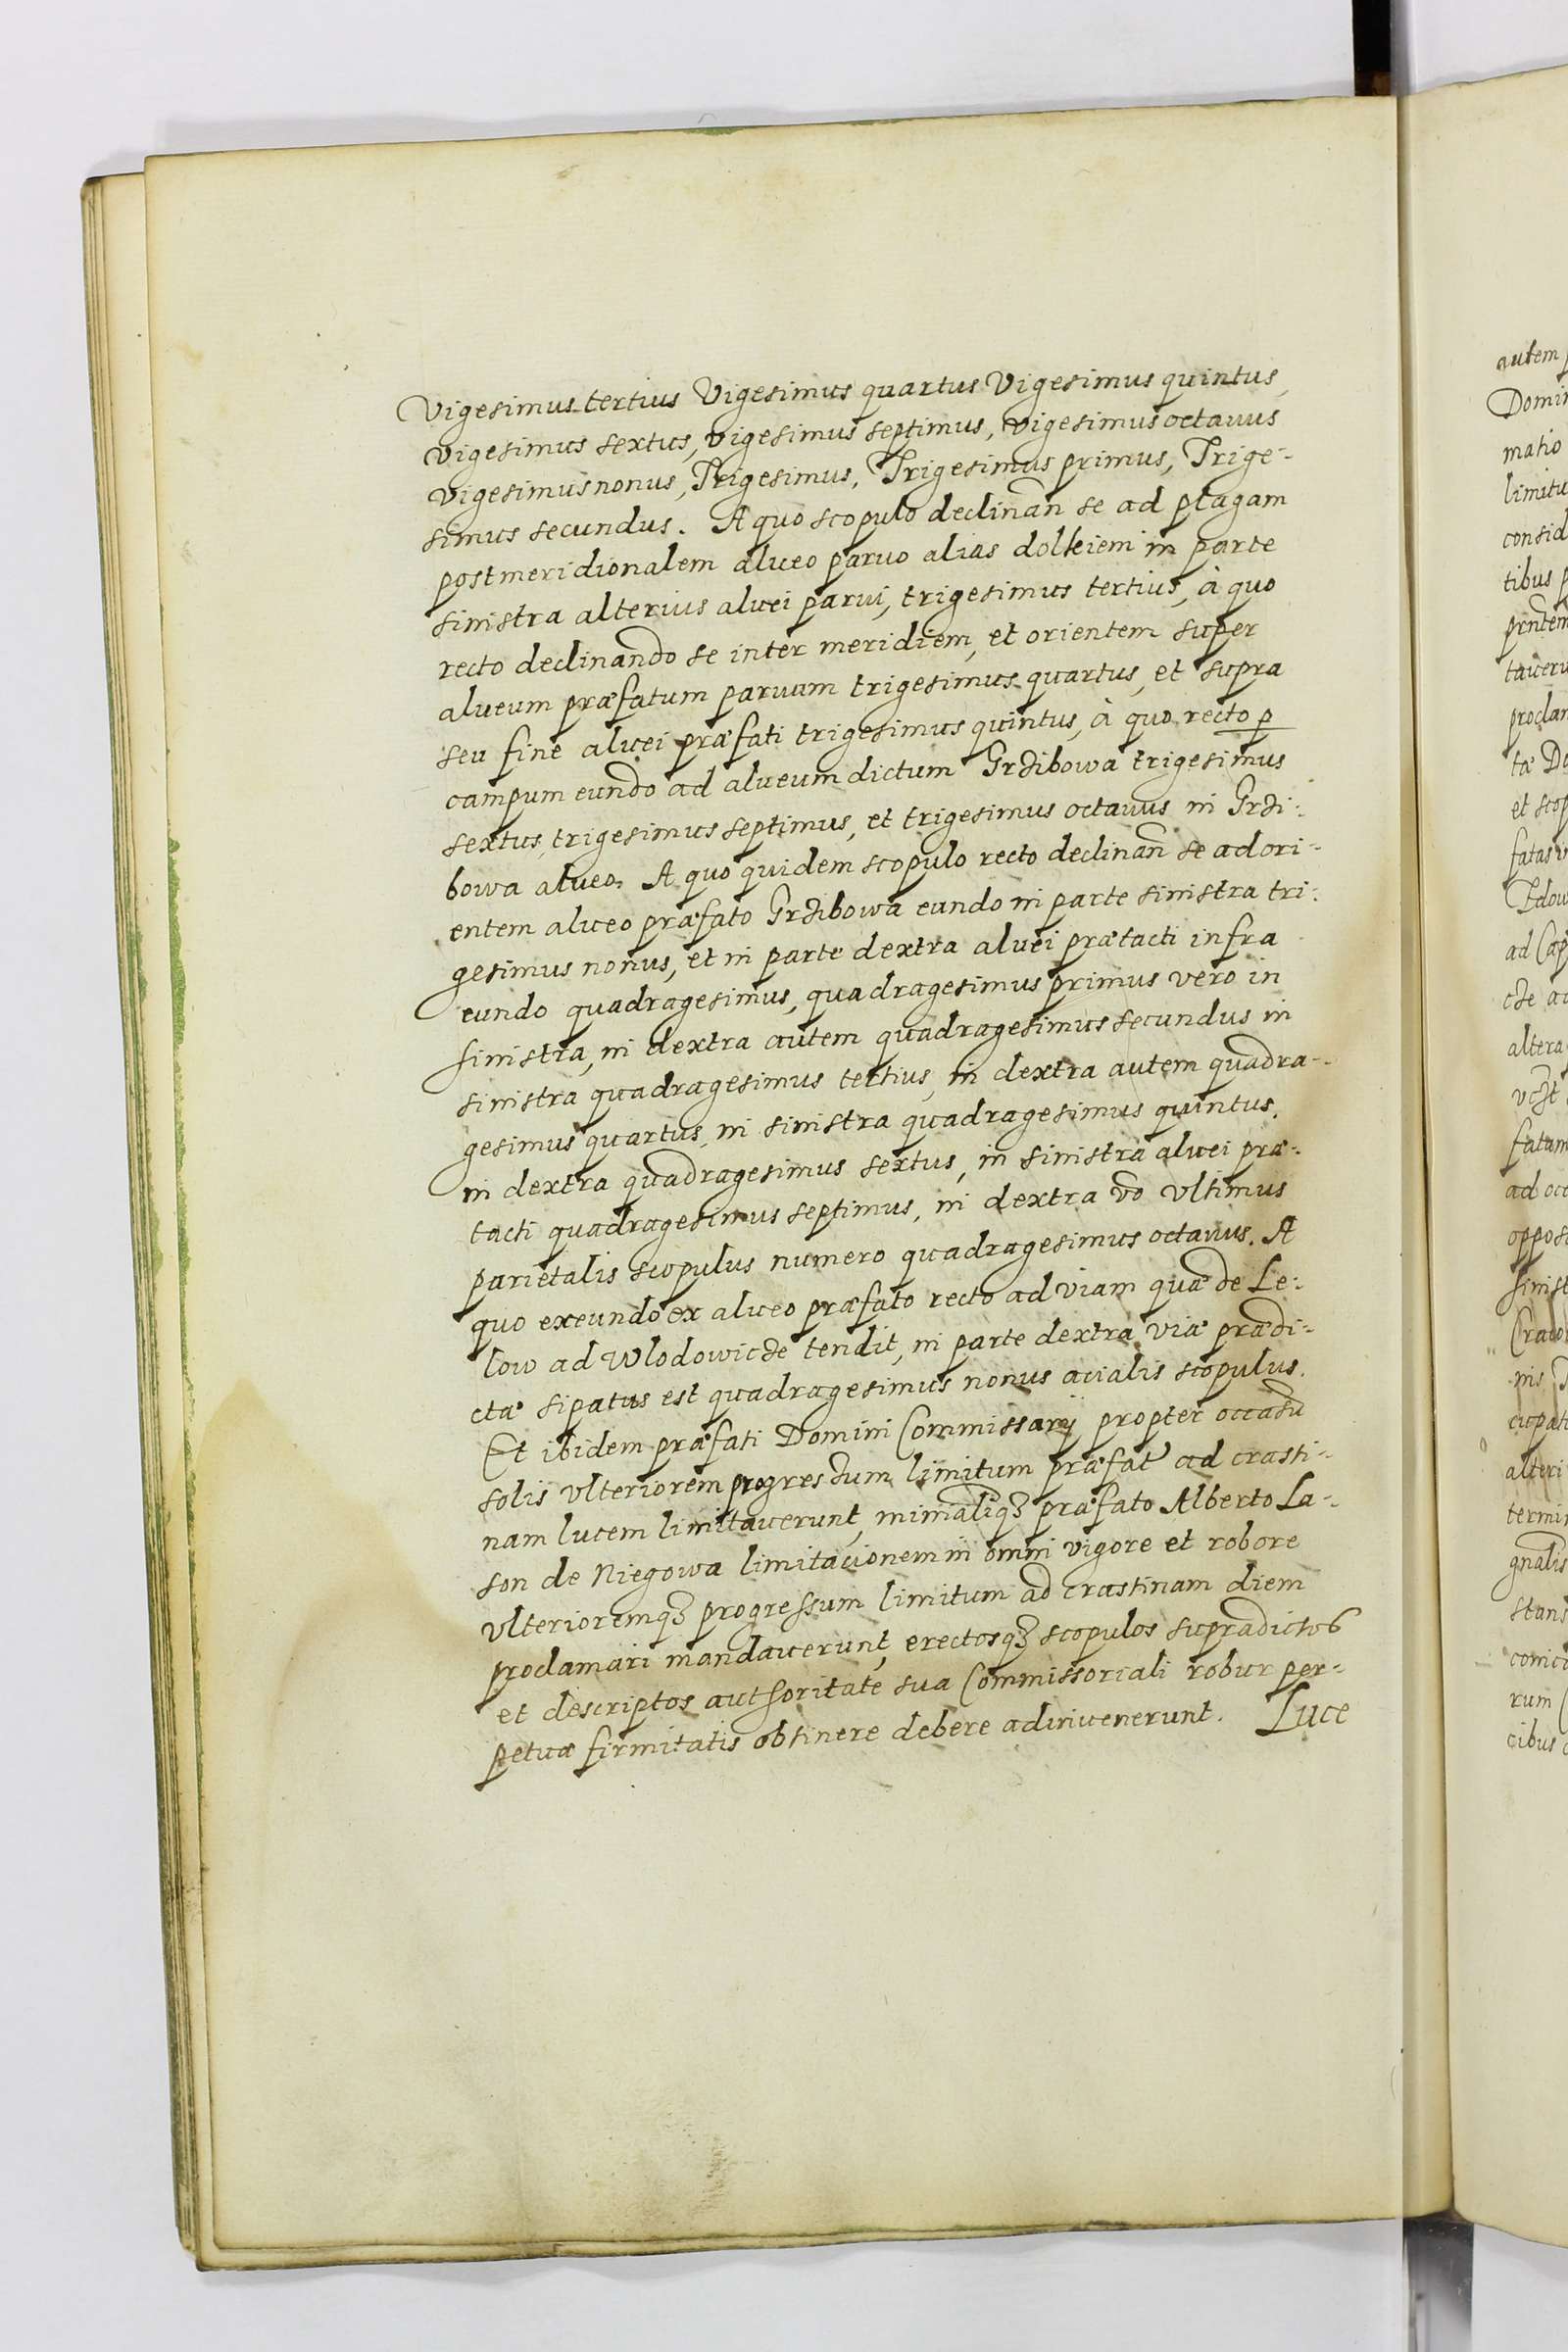 Vigesimus tertius Vigesimus quartus Vigesimus quintus,
vigesimus sextus, vigesimus septimus, vigesimus octauus
vigesimus nonus, Trigesimus, Trigesimus primus, Trige-
simus secundus. A quo scopulo declinan̄ se ad plagam
postmeridionalem alueo paruo alias dolkiem in parte
sinistra alterius aluei parui, trigesimus tertius, à quo
recto declinando se inter meridiem, et orientem super
alueum præfatum paruum trigesimus quartus, et supra
seu fine aluei præfati trigesimus quintus, à quo recto p̄
campum eundo ad alueum dictum Grzibowa trigesimus
sextus, trigesimus septimus, et trigesimus octauus in Grzi-
bowa alueo. A quo quidem scopulo recto declinan̄ se ad ori-
entem alueo præfato Grzibowa eundo in parte sinistra tri-
gesimus nonus, et in parte dextra aluei prætacti infra
eundo quadragesimus, quadragesimus primus vero in
sinistra, in dextra autem quadragesimus secundus in
sinistra quadragesimus tertius, in dextra autem quadra-
gesimus quartus, in sinistra quadragesimus quintus,
in dextra quadragesimus sextus, in sinistra aluei præ-
tacti quadragesimus septimus, in dextra v̄o vltimus
parietalis scopulus numero quadragesimus octauus. A
quo exeundo ex alueo præfato recto ad viam quæ de Le-
low ad Wlodowicze tendit, in parte dextra viæ prædi-
ctæ sipatus est quadragesimus nonus acialis scopulus.
Et ibidem præfati Domini Commissarij propter occasū
solis vlteriorem progressum limitum præfat ad crasti-
nam lucem limitauerunt, mimaliqꝫ præfato Alberto La-
son de Niegowa limitacionem in omni vigore et robore
vlterioremqꝫ progressum limitum ad crastinam diem
proclamari mandauerunt, erectosqꝫ scopulos supradictos
et descriptos authoritate sua Commissoriali robur per-
petuæ firmitatis obtinere debere adinuenerunt. Luce
autem
Domin
matio
limitu
consid
tibus
prn̄tem
tauer
proclam
tæ Do
et scop
fatas
ad Cap
cze
altera
fatam
ad occ
opposi
sinist
Craco
nis
cupati
alteri
termin
gn̄alis
stans
rum
cibus